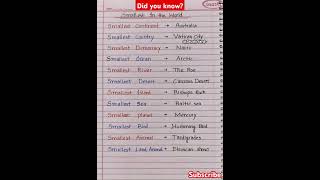 Did you know?
Smallest In the World
Smallest Continent → Australia
Smallest Country → Vatican City
Smallest Democracy → Nauru
Smallest Ocean → Arctic
Smallest River → The Roe
Smallest Desert → Carcross Desert
Smallest Island → Bishops Rock
Smallest Sea → Baltic sea
Smallest planet → Mercury
Smallest Bird → Humming Bird
Smallest Animal → Tardigrades
Smallest Land Animal →
Subscribe